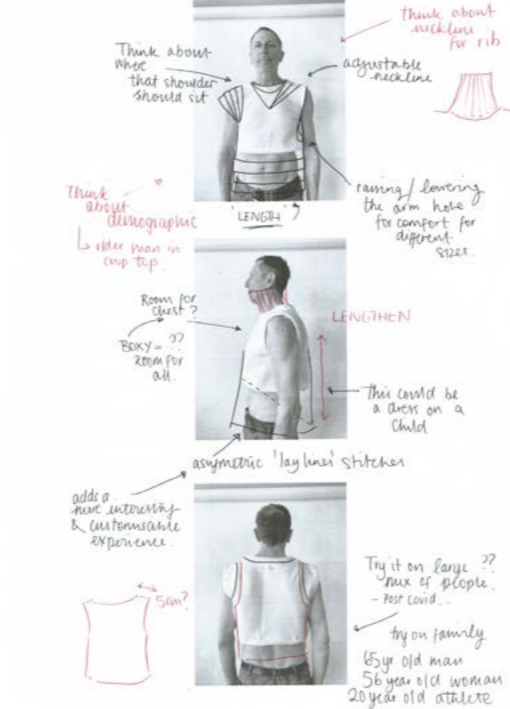 think about
neckline
for rib
Think about
where
that shoulder
should sit
adjustable
neckline
raising / lowering
the arm hole
for comfort for
different
sizes.
Think
about
demographic
↳ older man in
crop top.
'LENGTH'
Room for
chest?
BOXY = ??
room for
all.
LENGTHEN
this could be
a dress on a
child
asymmetric 'lay lines' stitches
adds a
more interesting
& customisable
experience.
5cm?
Try it on large ??
mix of people.
- Post covid..
try on family
65yr old man
56 year old woman
20 year old athlete